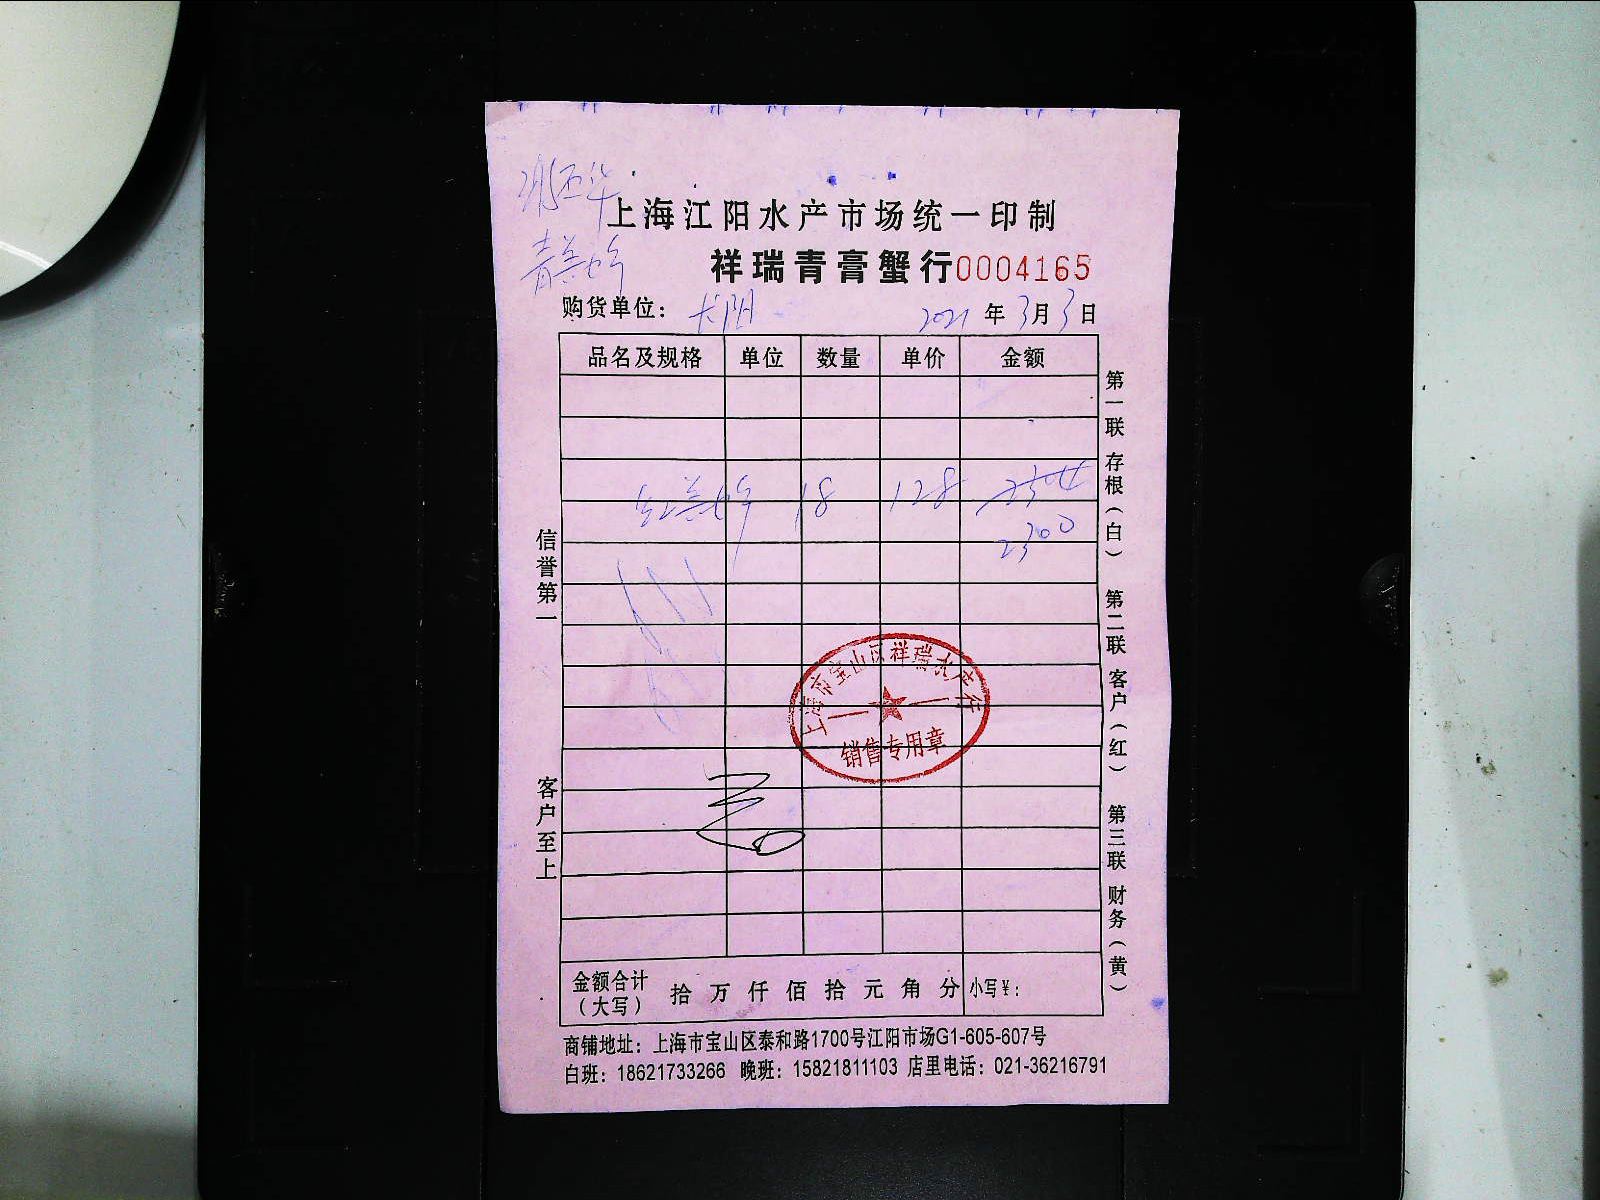 上海江阳水产市场统一印制
祥瑞青膏蟹行0004165
购货单位： 长阳 2021年3月3日
品名及规格 单位 数量 单价 金额
18 128 2304
2300
上海市宝山区祥瑞水产行
销售专用章
金额合计（大写） 拾 万 仟 佰 拾 元 角 分 小写￥：
商铺地址：上海市宝山区泰和路1700号江阳市场G1-605-607号
白班：18621733266 晚班：15821811103 店里电话：021-36216791
信誉第一
客户至上
第一联 存根（白） 第二联 客户（红） 第三联 财务（黄）